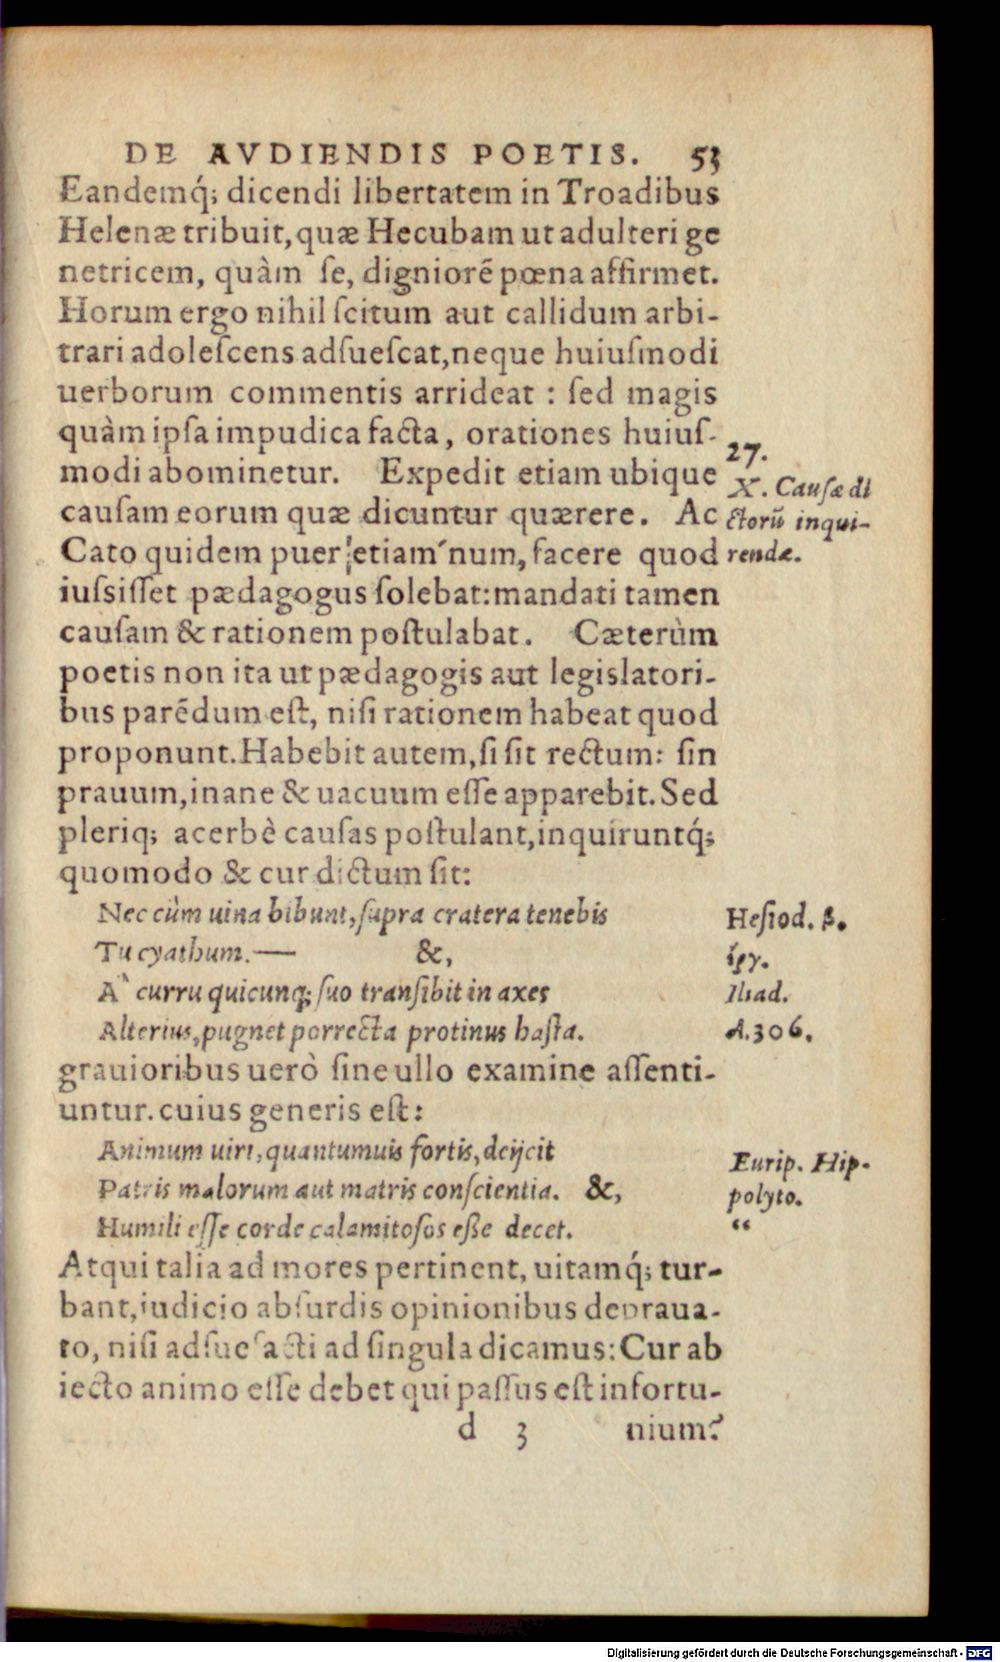 DE AVDIENDIS POETIS. 53
Eandemq́; dicendi libertatem in Troadibus
Helenæ tribuit, quæ Hecubam ut adulteri ge
netricem, quàm ſe, digniorẽ pœna affirmet.
Horum ergo nihil ſcitum aut callidum arbi-
trari adoleſcens adſueſcat, neque huiuſmodi
uerborum commentis arrideat : ſed magis
quàm ipſa impudica facta, orationes huiuſ-
modi abominetur. Expedit etiam ubique
27.
X. Cauſæ di
cauſam eorum quæ dicuntur quærere. Ac
ctorũ inqui-
Cato quidem puer etiam'num, facere quod
rendæ.
iuſsiſſet pædagogus ſolebat: mandati tamen
cauſam & rationem poſtulabat. Cæterùm
poetis non ita ut pædagogis aut legislatori-
bus parẽdum eſt, niſi rationem habeat quod
proponunt. Habebit autem, ſi ſit rectum: ſin
prauum, inane & uacuum eſſe apparebit. Sed
pleriq; acerbè cauſas poſtulant, inquiruntq́;
quomodo & cur dictum ſit:
Nec cùm uina bibunt, ſupra cratera tenebis
Heſiod. β.
Tu cyathum.— &,
ἔργ.
A` curru quicunq; ſuo tranſibit in axes
Iliad.
Alterius, pugnet porrecta protinus haſta.
Δ.306.
grauioribus uerò ſine ullo examine aſſenti-
untur. cuius generis eſt:
Animum uiri, quantumuis fortis, deijcit
Eurip. Hip-
Patris malorum aut matris conſcientia. &,
polyto.
Humili eſſe corde calamitoſos eße decet.
“
Atqui talia ad mores pertinent, uitamq́; tur-
bant, iudicio abſurdis opinionibus depraua-
to, niſi adſuefacti ad ſingula dicamus: Cur ab
iecto animo eſſe debet qui paſſus eſt infortu-
d 3 nium?
Digitalisierung gefördert durch die Deutsche Forschungsgemeinschaft - DFG